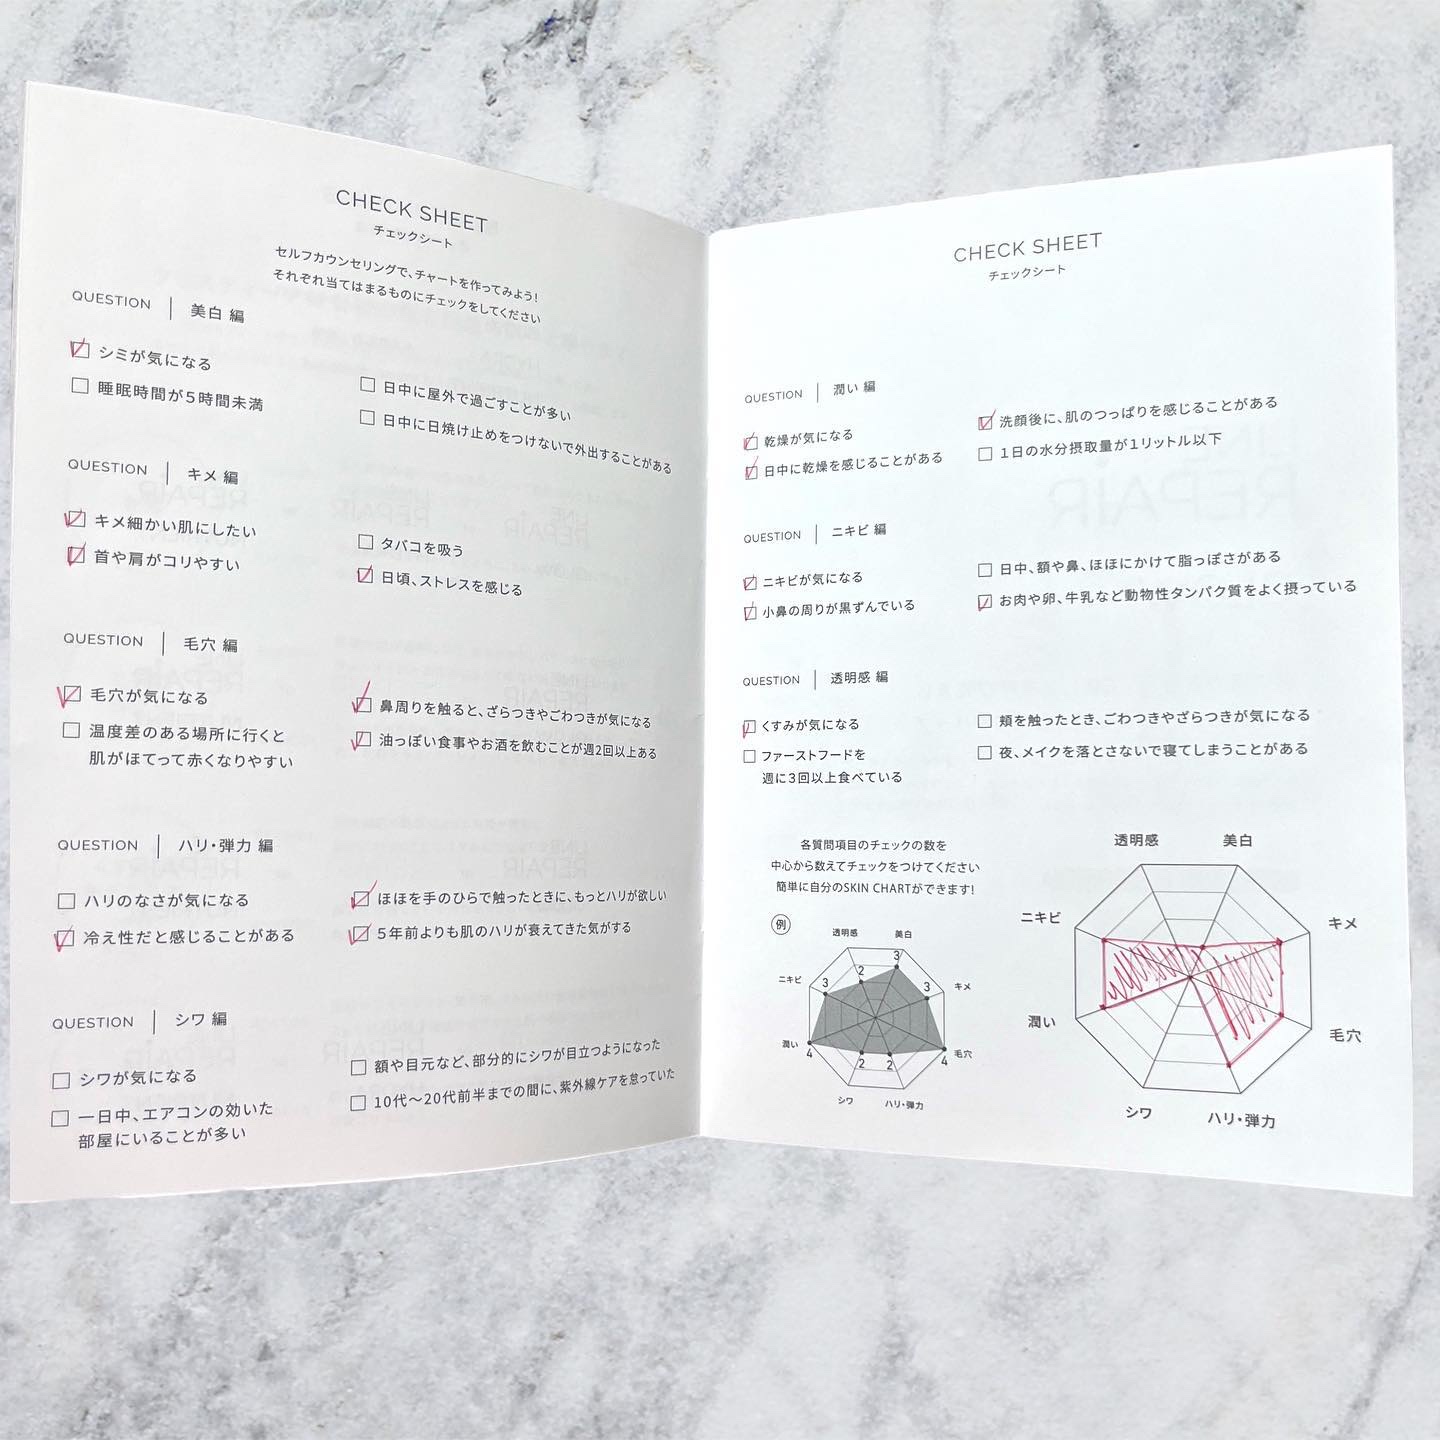 CHECK SHEET
チェックシート
セルフカウンセリングで、チャートを作ってみよう!
それぞれ当てはまるものにチェックをしてください
QUESTION | 美白 編
シミが気になる
睡眠時間が5時間未満
日中に屋外で過ごすことが多い
日中に日焼け止めをつけないで外出することがある
QUESTION | キメ 編
キメ細かい肌にしたい
首や肩がコリやすい
タバコを吸う
日頃、ストレスを感じる
QUESTION | 毛穴 編
毛穴が気になる
温度差のある場所に行くと
肌がほてって赤くなりやすい
鼻周りを触ると、ざらつきやごわつきが気になる
油っぽい食事やお酒を飲むことが週2回以上ある
QUESTION | ハリ・弾力 編
ハリのなさが気になる
冷え性だと感じることがある
ほほを手のひらで触ったときに、もっとハリが欲しい
5年前よりも肌のハリが衰えてきた気がする
QUESTION | シワ 編
シワが気になる
一日中、エアコンの効いた
部屋にいることが多い
額や目元など、部分的にシワが目立つようになった
10代〜20代前半までの間に、紫外線ケアを怠っていた
CHECK SHEET
チェックシート
QUESTION | 潤い 編
乾燥が気になる
日中に乾燥を感じることがある
洗顔後に、肌のつっぱりを感じることがある
1日の水分摂取量が1リットル以下
QUESTION | ニキビ 編
ニキビが気になる
小鼻の周りが黒ずんでいる
日中、額や鼻、ほほにかけて脂っぽさがある
お肉や卵、牛乳など動物性タンパク質をよく摂っている
QUESTION | 透明感 編
くすみが気になる
ファーストフードを
週に3回以上食べている
頬を触ったとき、ごわつきやざらつきが気になる
夜、メイクを落とさないで寝てしまうことがある
各質問項目のチェックの数を
中心から数えてチェックをつけてください
簡単に自分のSKIN CHARTができます!
例
透明感
美白
3
2
ニキビ
3
3
キメ
潤い
4
2
2
4
毛穴
シワ
ハリ・弾力
透明感
美白
ニキビ
キメ
潤い
毛穴
シワ
ハリ・弾力